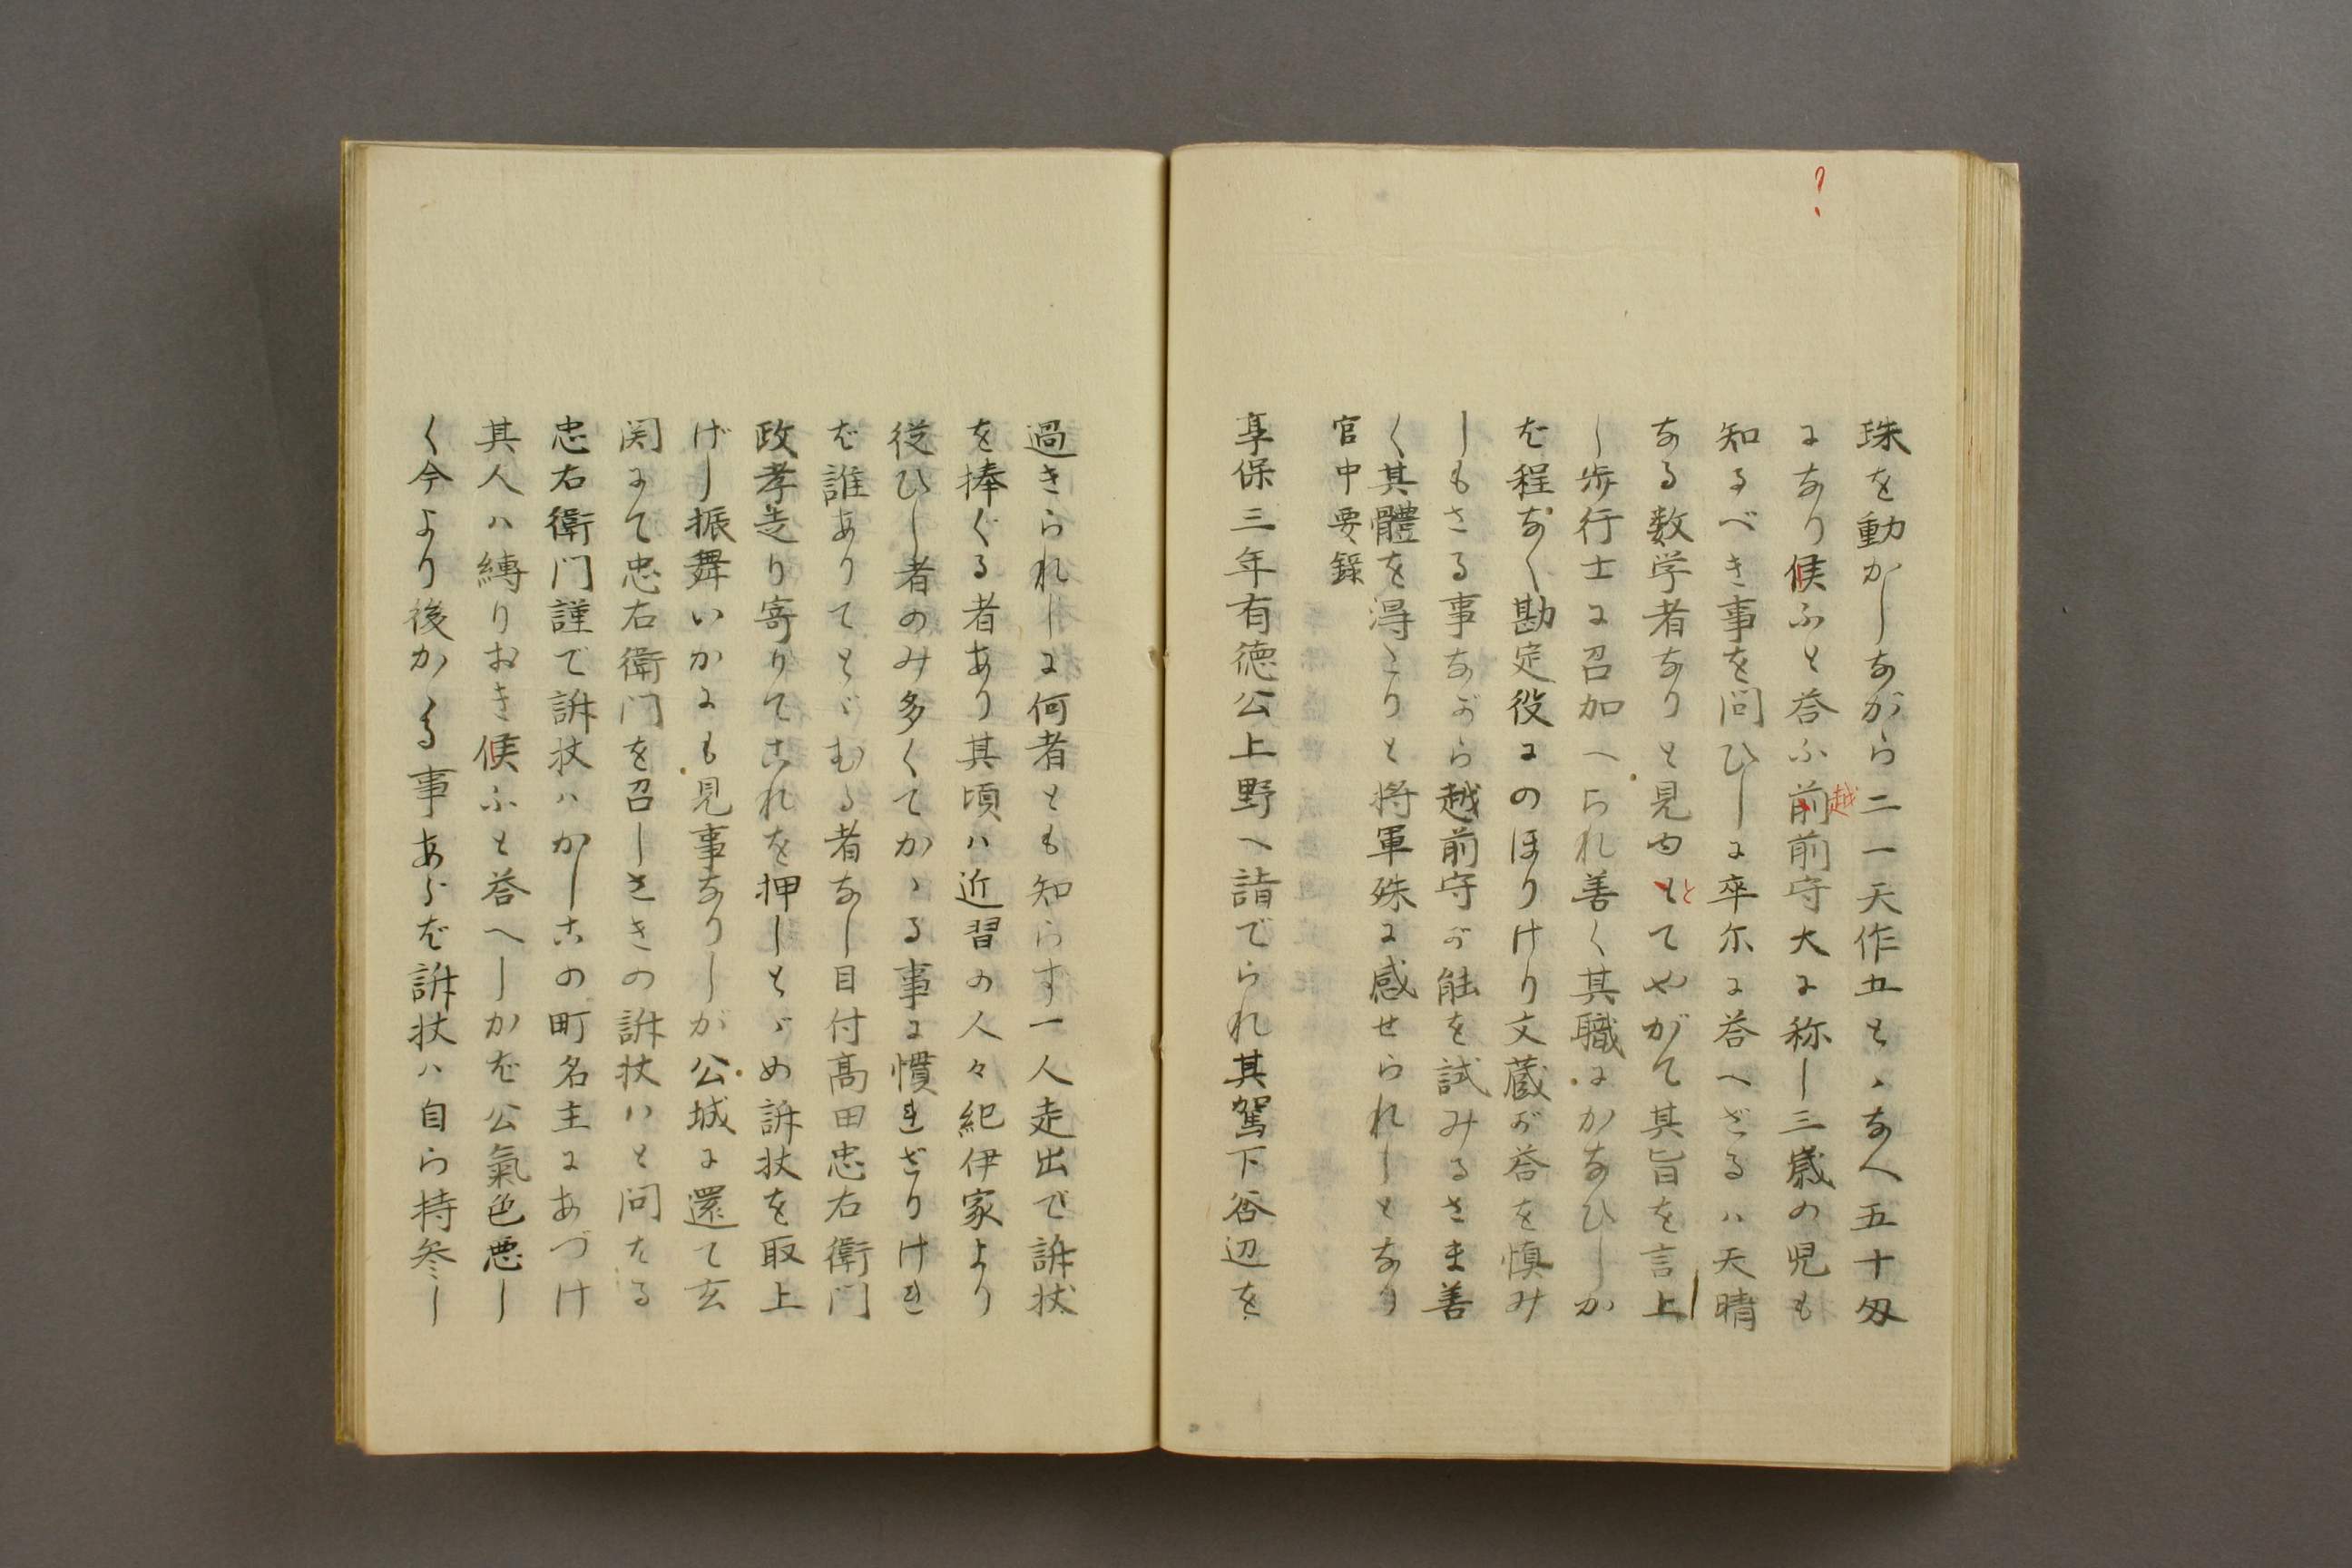 ?
珠を動かしながら二一天作五とゝなへ五十匁
になり候ふと答ふ前前守大に称し三歳の児も
越
知るべき事を問ひしに卒尓に答へざるハ天晴
なる数学者なりと見由もてやがて其旨を言上
と
し歩行士に召加へられ善く其職にかなひしか
ば程なく勘定役にのほりけり文蔵が答を慎み
しもさる事ながら越前守が能を試みるさま善
く其體を得とりと将軍殊に感せられしとなり
官中要録
享保三年有徳公上野へ詣でられ其駕下谷辺を
過きられしに何者とも知らす一人走出で訴状
を捧ぐる者あり其頃ハ近習の人々紀伊家より
従ひし者のみ多くてかゝる事に慣れざりけれ
ば誰ありてとゞむる者なし目付髙田忠右衛門
政孝走り寄りてこれを押しとゞめ訴状を取上
げし振舞いかにも見事なりしが公城に還て玄
関にて忠右衛門を召しさきの訴状ハと問たる
忠右衛門謹で訴状ハかしこの町名主にあづけ
其人ハ縛りおき候ふと答へしかば公氣色悪し
く今より後かゝる事あらば訴状ハ自ら持参し